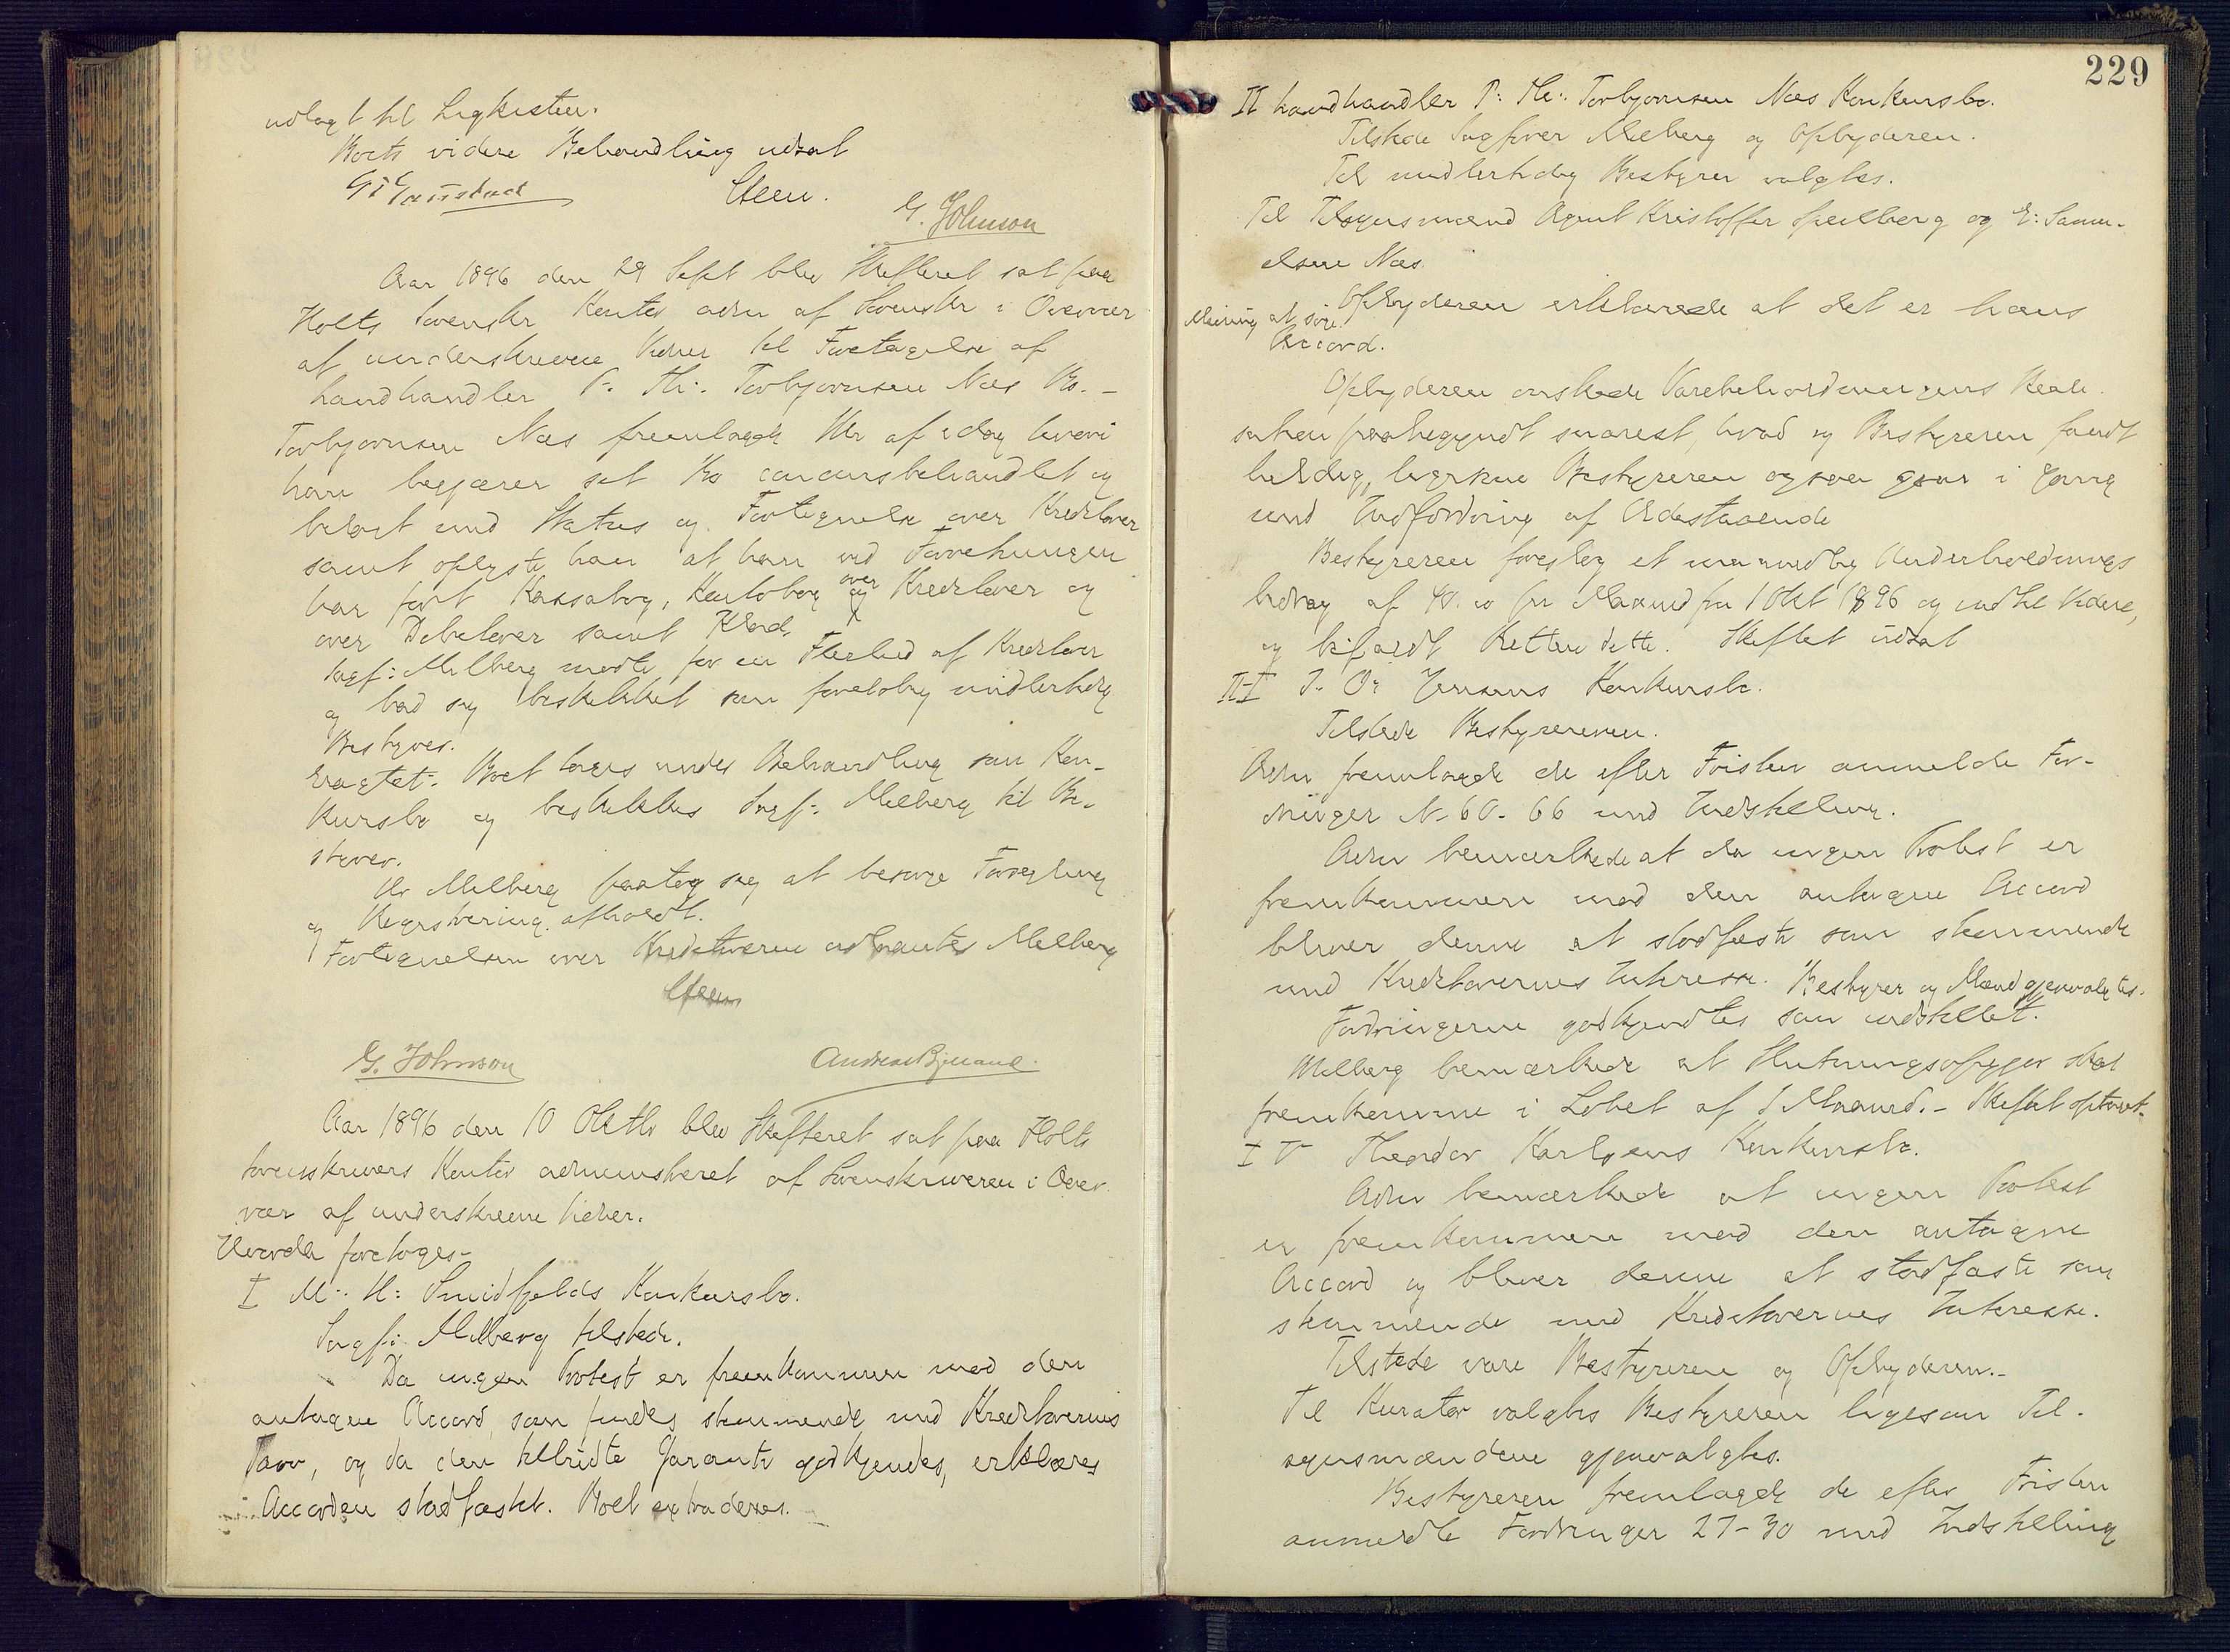 udlagt til Ligkisten.
Boets videre Behandling udsat
Steen.
G. Johnson
Aar 1896 den 29 Sept blev Skifteret sat paa
Holts Sorenskr Kontor adm af Sorenskr i Overvær
af underskrevne Vidner til Foretagelse af
Landhandler T. Th. Torbjørnsen Næs Bo. -
Torbjørnsen Næs fremlagde Skr af idag hvori
han begjærer sit Bo concursbehandlet og
bilagt med Status og Fortegnelse over Kreditorer
samt oplyste han at han ved Forretningen
har ført Kassabog, Kontobog over Kreditorer og
over Debitorer samt Klad.
Sagf: Melberg mødte for en Flerhed af Kreditorer
og bad sig beskikket som foreløbig midlertidig
Bestyrer.
Eragtet: Boet toges under Behandling som Kon-
kursbo og beskikkes Sagf: Melberg til Be-
styrer.
Hr Melberg paatog sig at besørge Forsegling
og Registrering afholdt.
Fortegnelsen over Kreditorerne Melberg
Steen
G. Johnson
Aar 1896 den 10 Oktbr blev Skifteret sat paa Holts
Sorenskrivers Kontor administreret af Sorenskriveren i Over-
vær af underskrevne Vidner.
Hvorda foretoges -
I M. H: Smidfjelds Konkursbo.
Sagf: Melberg tilstede.
Da ingen Protest er fremkommen mod den
antagne Accord, som findes stemmende med Kreditorernes
Tarv, og da den tilbudte Garanti godkjendes, erklæres
Accorden stadfæstet. Boet extraderes.
229
II Landhandler T: Th: Torbjørnsen Næs Konkursbo.
Tilstede Sagfører Melberg og Opbyderen.
Til midlertidig Bestyrer valgtes.
Til Tilsynsmænd Agent Kristoffer og E: Samu-
elsen Næs.
Opbyderen erklærede at det er hans
Mening at søge
Accord.
Opbyderen ønskede Varebeholdningens Reali-
sation paabegyndt snarest, hvad og Bestyreren fandt
heldig, Bestyreren ogsaa gaar i Gang
med Indfordring af Udestaaende
Bestyreren foreslog et maanedlig Underholdnings
bidrag af 40.00 pr Maaned fra 1 Okt 1896 og indtil Videre,
og bifaldt Retten dette. Skiftet udsat
III T. O: Jensens Konkursbo.
Tilstede Bestyreren.
Adm fremlagde de efter Fristen anmeldte For-
dringer N. 60-66 med Indstilling.
Adm bemærkede at da ingen Protest er
fremkommen mod den antagne Accord
bliver denne at stadfæste som stemmende
med Kreditorernes Interesse. Bestyrer og Mænd gjenvalgtes.
Fordringerne godkjendtes som indstillet.
Melberg bemærkede at Slutningsopgjør skal
fremkomme i Løbet af 1 Maaned. - Skiftet optaget.
IV Theodor Karlsens Konkursbo.
Adm bemærkede at ingen Protest
er fremkommen mod den antagne
Accord og bliver denne at stadfæste som
stemmende med Kreditorernes Interesse.
Tilstede vare Bestyreren og Opbyderen. -
Til Kurator valgtes Bestyreren ligesom Til-
synsmændene gjenvalgtes.
Bestyreren fremlagde de efter Fristen
anmeldte Fordringer 27-30 med Indstilling